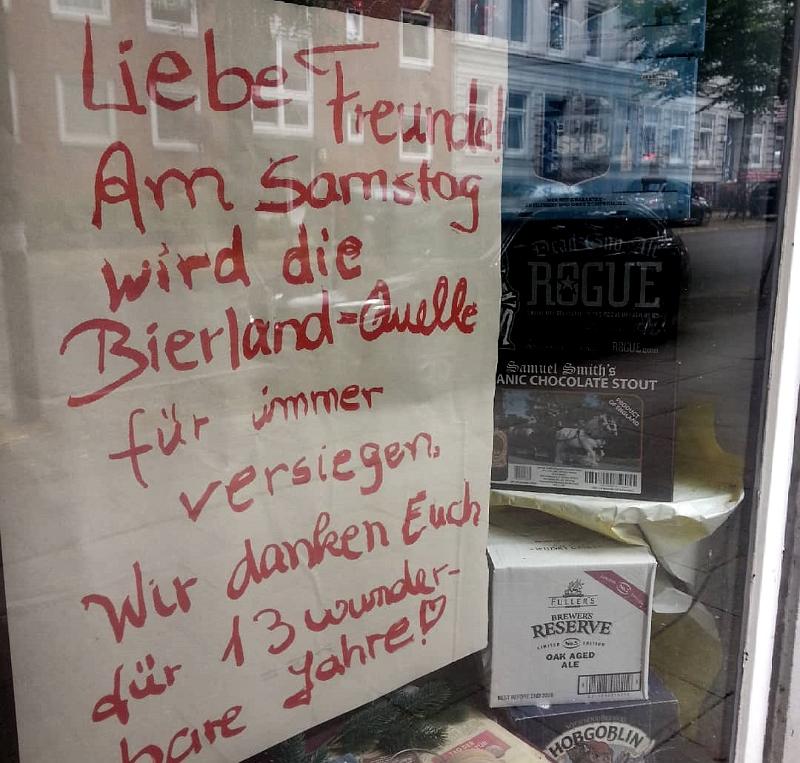 Liebe Freunde!
Am Samstag
wird die
Bierland=Quelle
für immer
versiegen.
Wir danken Euch
für 13 wunder-
bare Jahre!
Dead Guy Ale
ROGUE
ROGUE.com
Samuel Smith's
ANIC CHOCOLATE STOUT
PRODUCT
OF ENGLAND
FULLER'S
BREWER'S
RESERVE
LIMITED No.3 EDITION
OAK AGED
ALE
HOBGOBLIN